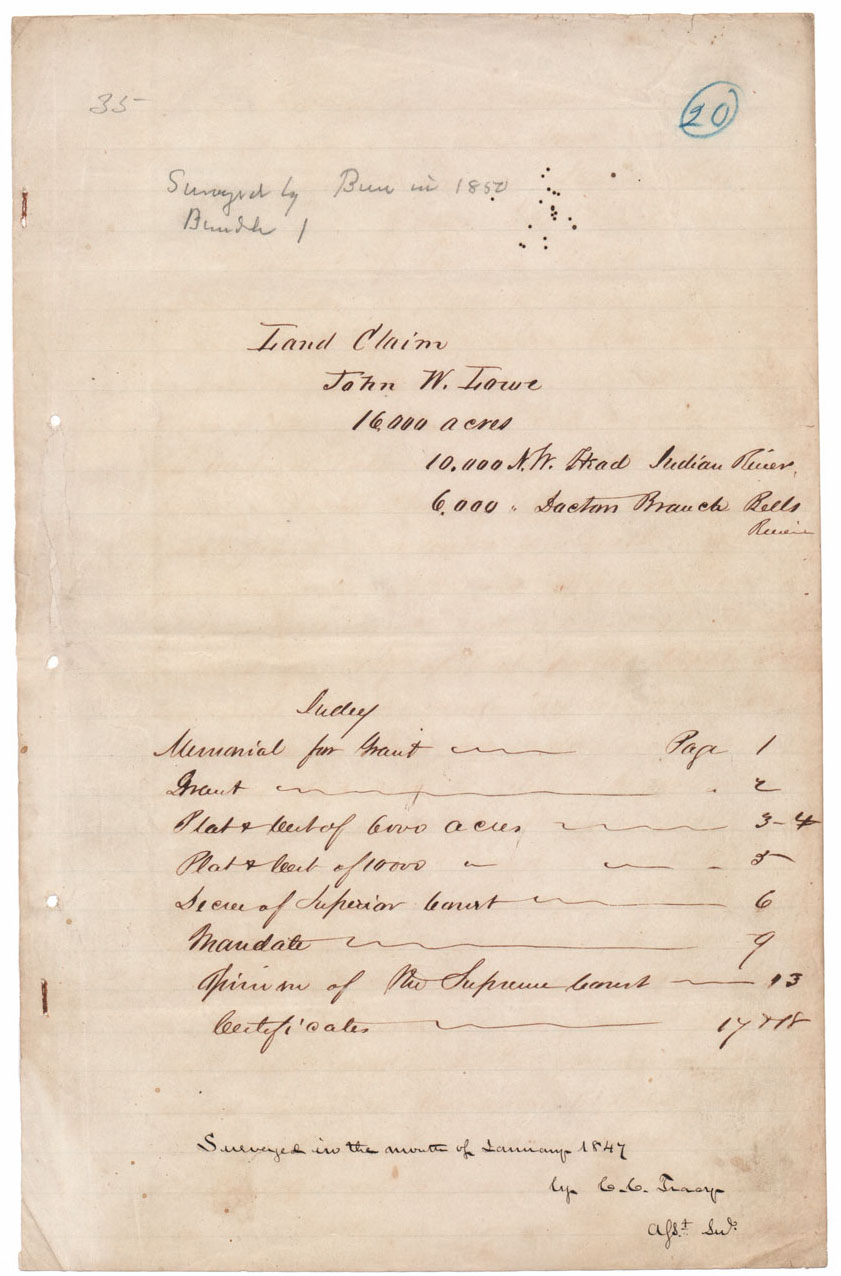 35
20
Surveyed by Burr in 1850
Bundle 1
Land Claim
John W. Lowe
16,000 acres
10,000 N.W. Head Indian River,
6,000 " Branch Bells
River
Index
Memorial for Grant Page 1
Grant 2
Plat & Cert of 6000 acres 3-4
Plat & Cert of 10000 " 5
Decree of Superior Court 6
Mandate 9
Opinion of the Supreme Court 13
Certificates 17 & 18
Surveyed in the month of January 1847
by C. C. Tracy
Asst Sur.